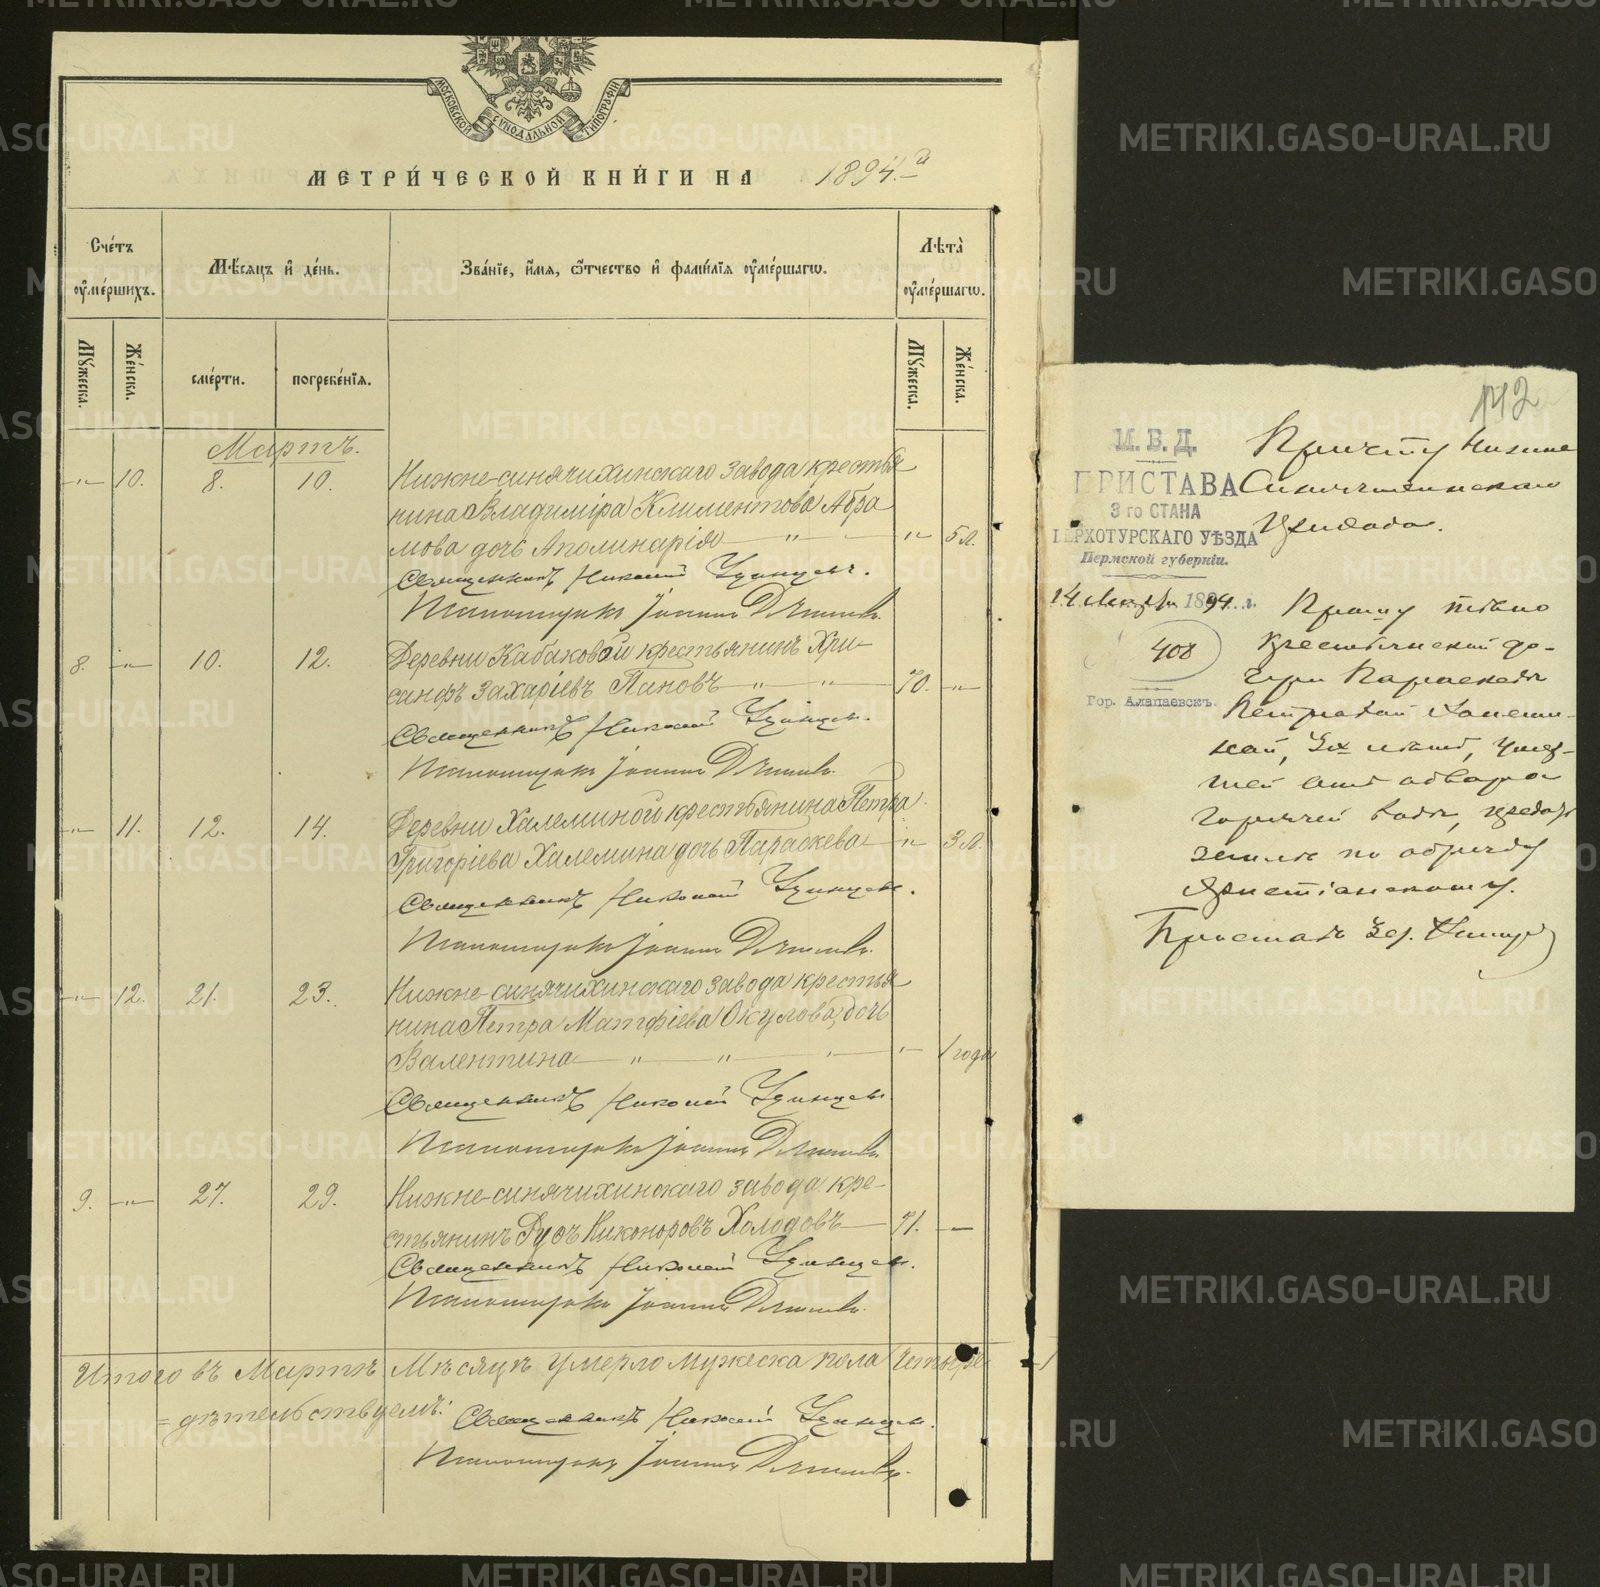 МОСКОВСКОЙ СѴНОДАЛЬНОЙ ТИПОГРАФІИ
МЕТРИ́ЧЕСКОЙ КНИ́ГИ НА 1894.й
Сче́тъ оу҆ме́ршихъ.
Мѣ́сяцъ и҆ де́нь.
Зва́нїе, и҆́мя, ѻ҆́тчество и҆ фами́лїя оу҆ме́ршагѡ.
Лѣта̀ оу҆ме́ршагѡ.
Мꙋ́жеска.
Же́нска.
сме́рти.
погребе́нїя.
Мꙋ́жеска.
Же́нска.
Мартъ.
-"- 10. 8. 10. Нижне-синячихинскаго завода крестья
нина Владиміра Климентова Абра
мова дочь Аполинарія — " — " 5 л.
Священникъ Николай Удинцевъ.
Псаломщикъ Іоаннъ
8. -"- 10. 12. Деревни Кабаковой крестьянинъ Хри-
санфъ Захаріевъ Пановъ — " — " — 70. -"-
Священникъ Николай Удинцевъ.
Псаломщикъ Іоаннъ
-"- 11. 12. 14. Деревни Халеминой крестьянина Петра
Григоріева Халемина дочь Параскева — " 3 л.
Священникъ Николай Удинцевъ.
Псаломщикъ Іоаннъ
-"- 12. 21. 23. Нижне-синячихинскаго завода крестья
нина Петра Матфіева Окулова дочь
Валентина — " — " — " 1 годъ
Священникъ Николай Удинцевъ.
Псаломщикъ Іоаннъ
9. -"- 27. 29. Нижне-синячихинскаго завода кре-
стьянинъ Никоноровъ Холодовъ — 71. —
Священникъ Николай Удинцевъ.
Псаломщикъ Іоаннъ
Итого въ Мартѣ Мѣсяцѣ умерло мужеска пола четыре
=дѣтельствуемъ: Священникъ Николай Удинцевъ.
Псаломщикъ Іоаннъ
142
М. В. Д.
ПРИСТАВА
3 го СТАНА
ВЕРХОТУРСКАГО УѢЗДА
Пермской губерніи.
14 Марта 1894 г.
408
Гор. Алапаевскъ.
Причту Нижне
Синячихинскаго
Прихода.
Прошу тѣло
крестьянской до-
чери Параскевы
Петровой Халеми-
ной, 3х лѣтъ, умер-
шей отъ обвара
горячей воды, предать
землѣ по обряду
христіанскому.
Приставъ
METRIKI.GASO-URAL.RU